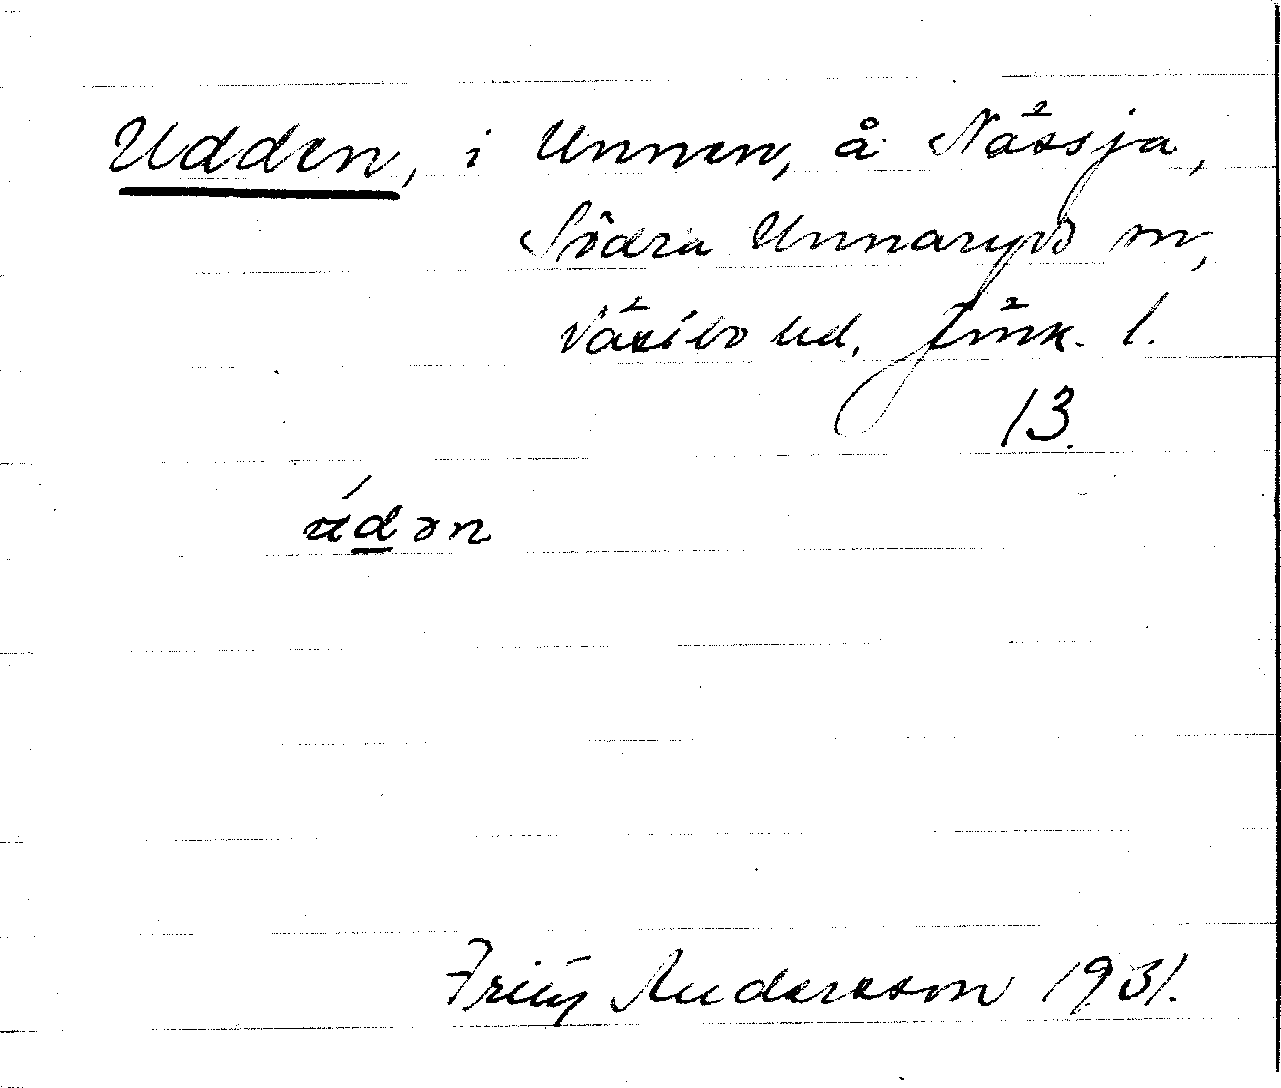 Udden, i Unnen, å Nässja,
Södra Unnaryds sn,
Västbo hd, Jönk. l.
13.
údən
Fritz Andersson 1931.